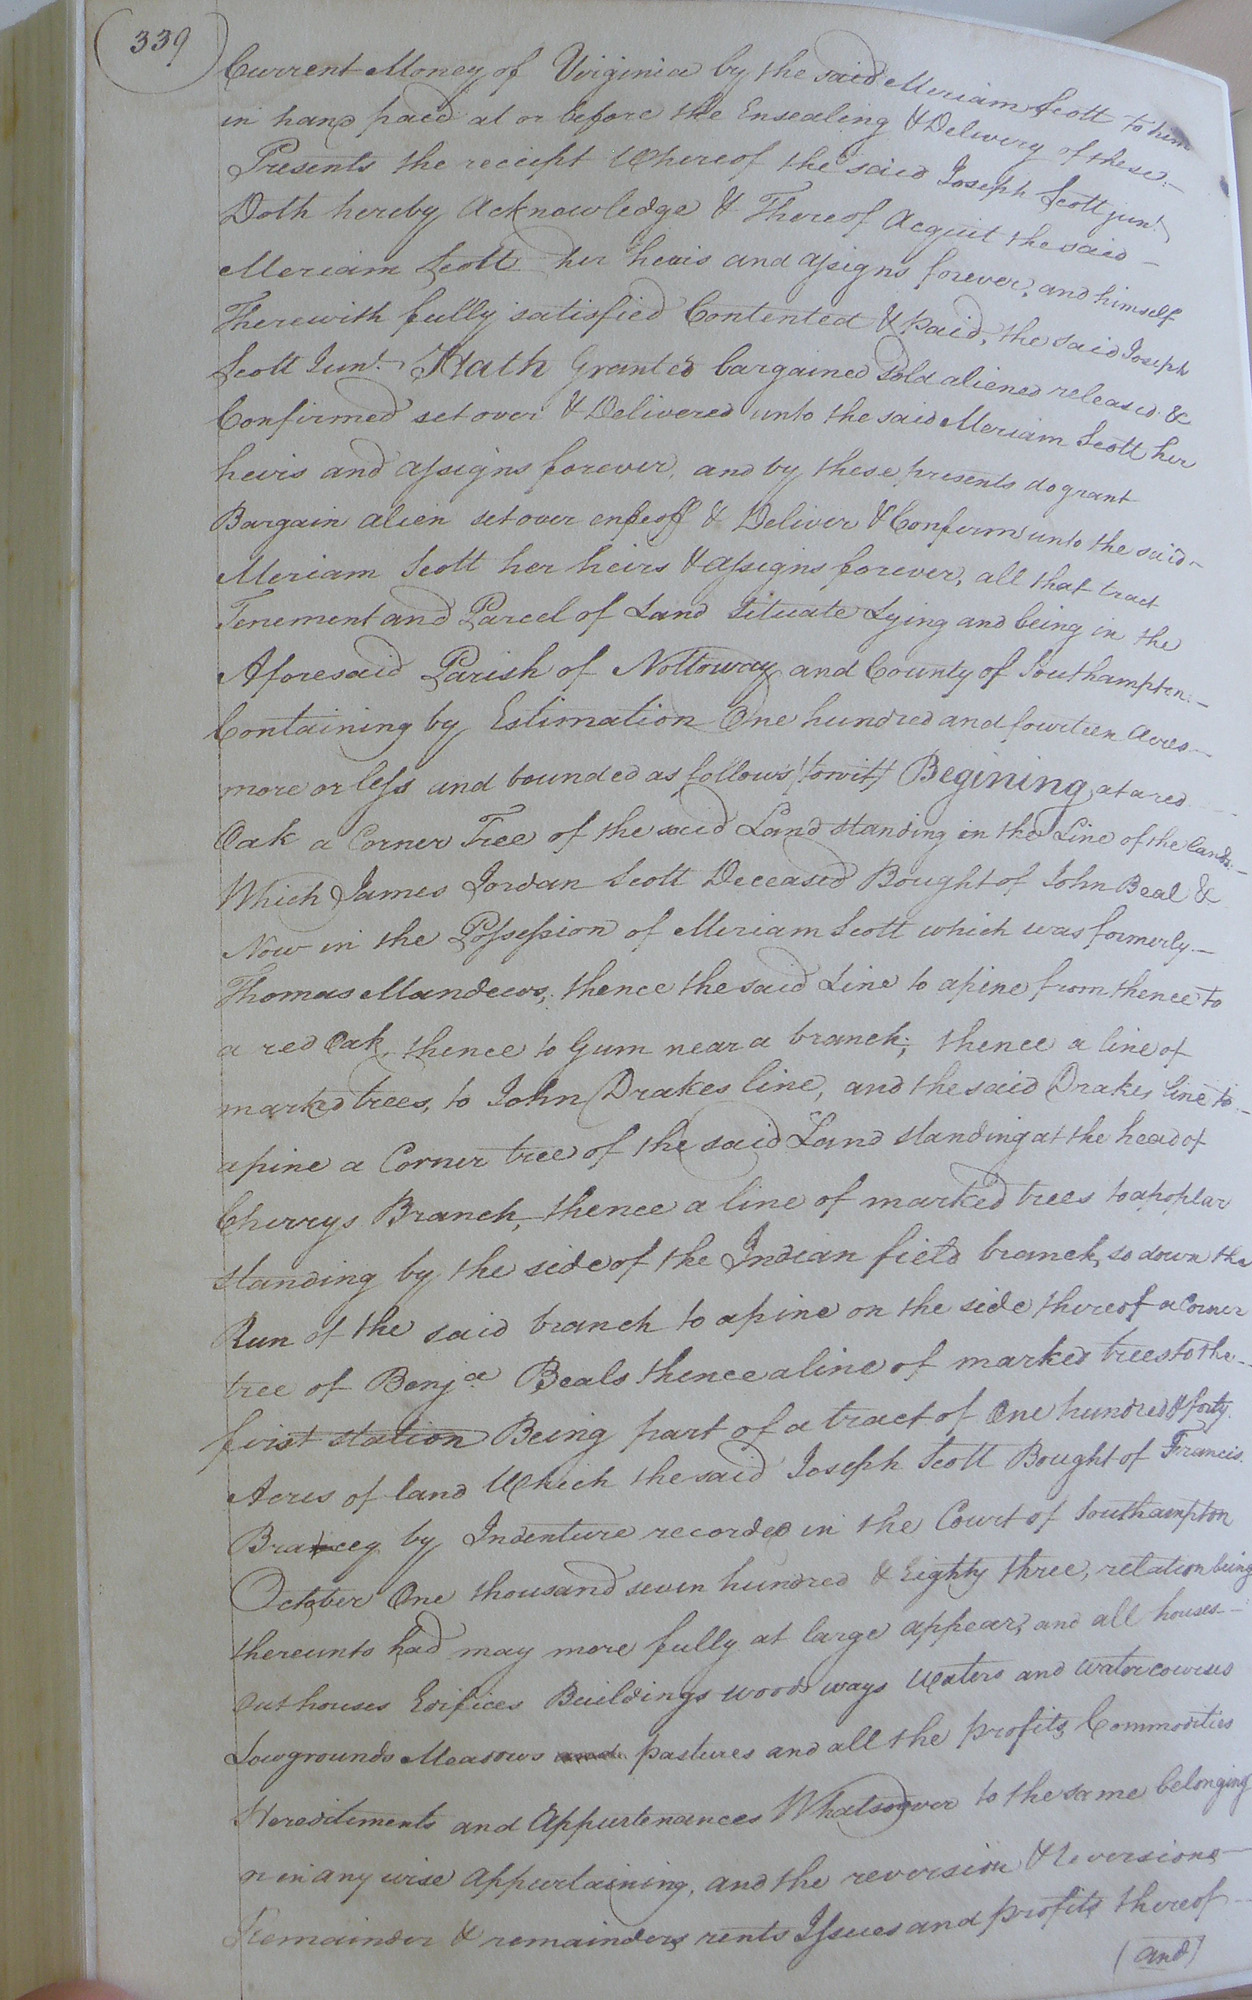 339
Current Money of Virginia by the said Meriam Scott to him
in hand paid at or before the Ensealing & Delivery of these
Presents the reciept Whereof the said Joseph Scott junr.
Doth hereby Acknowledge & Thereof Acquit the said
Meriam Scott her heirs and assigns forever, and himself
Therewith fully satisfied Contented & paid, the said Joseph
Scott Junr. Hath Granted bargained Sold aliened released &
Confirmed set over & Delivered unto the said Meriam Scott her
heirs and assigns forever, and by these presents do grant
Bargain alien set over enfeoff & Deliver & Confirm unto the said
Meriam Scott her heirs & assigns forever, all that tract
Tenement and Parcel of Land Situate Lying and being in the
Aforesaid Parish of Nottoway and County of Southampton
Containing by Estimation One hundred and fourteen Acres
more or less and bounded as follows (towit) Begining at a red
Oak a Corner Tree of the said Land standing in the Line of the lands
Which James Jordan Scott Deceased Bought of John Beal &
Now in the Possession of Meriam Scott which was formerly
Thomas Mandews, thence the said Line to a pine from thence to
a red Oak, thence to Gum near a branch; thence a line of
marked trees, to John Drakes line, and the said Drakes line to
a pine a Corner tree of the said Land standing at the head of
Cherrys Branch, thence a line of marked trees to a poplar
standing by the side of the Indian field branch, so down the
Run of the said branch to a pine on the side thereof a Corner
tree of Benja. Beals thence a line of marked trees to the
first station Being part of a tract of One hundred & forty
Acres of land Which the said Joseph Scott Bought of Francis
by Indenture recorded in the Court of Southampton
October One thousand seven hundred & Eighty three, relation being
thereunto had may more fully at large appear, and all houses
Outhouses Edifices Buildings woods ways Waters and watercourses
Lowgrounds Meadows and pastures and all the profits Commodities
Herediments and Appurtenances Whatsoever to the same belonging
or in any wise appurtaining, and the reversion & reversions
Remainder & remainders rents Issues and profits thereof
(and)